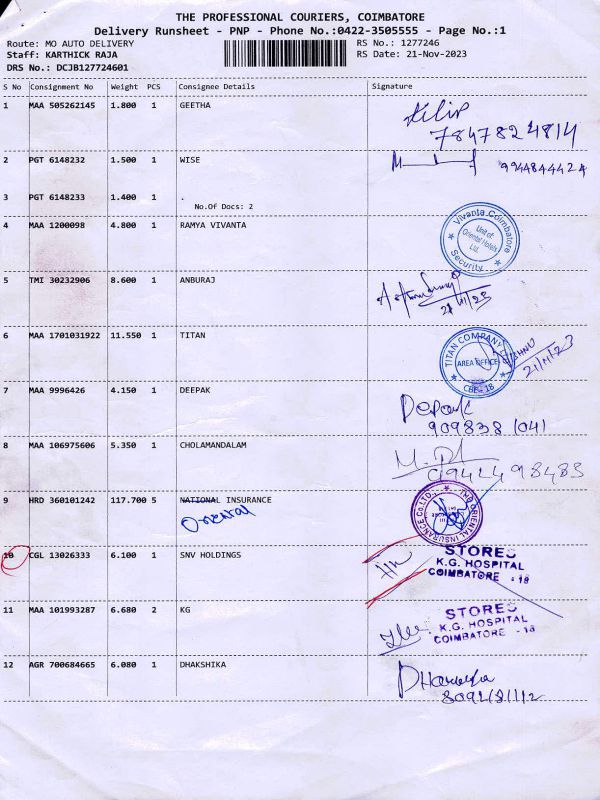 THE PROFESSIONAL COURIERS, COIMBATORE
Delivery Runsheet - PNP - Phone No.:0422-3505555 - Page No.:1
Route: MO AUTO DELIVERY RS No.: 1277246
Staff: KARTHICK RAJA RS Date: 21-Nov-2023
DRS No.: DCJB127724601
S No Consignment No Weight PCS Consignee Details Signature
1 MAA 505262145 1.800 1 GEETHA
7847824814
2 PGT 6148232 1.500 1 WISE
9944844424
3 PGT 6148233 1.400 1 .
No.Of Docs: 2
4 MAA 1200098 4.800 1 RAMYA VIVANTA
Vivanta Coimbatore
Unit of:
Oriental Hotels
Ltd.
Security
5 TMI 30232906 8.600 1 ANBURAJ
21/11/23
6 MAA 1701031922 11.550 1 TITAN
TITAN COMPANY
AREA OFFICE
CBE - 18
21/11/23
7 MAA 9996426 4.150 1 DEEPAK
Depak
9098381041
8 MAA 106975606 5.350 1 CHOLAMANDALAM
0942498483
9 HRD 360101242 117.700 5 NATIONAL INSURANCE
Oriental
THE ORIENTAL INSURANCE CO. LTD.
10 CGL 13026333 6.100 1 SNV HOLDINGS
STORES
K.G. HOSPITAL
COIMBATORE - 18
11 MAA 101993287 6.680 2 KG
STORES
K.G. HOSPITAL
COIMBATORE - 18
12 AGR 700684665 6.080 1 DHAKSHIKA